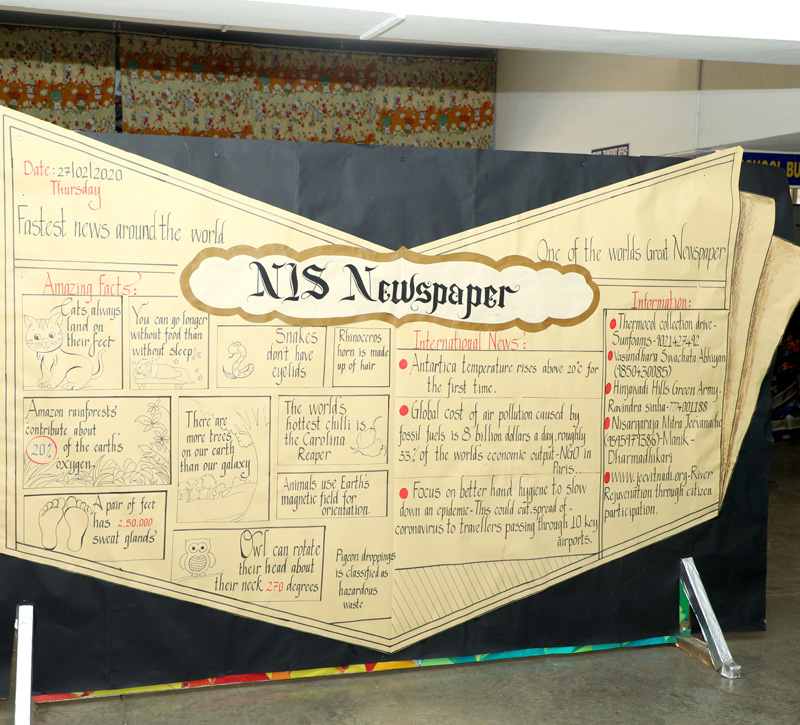 Date: 27/02/2020
Thursday
Fastest news around the world
One of the worlds Great Newspaper
NIS Newspaper
Amazing Facts:
Cats always
land on
their feet
You can go longer
without food than
without sleep
Snakes
don't have
eyelids
Rhinoceros
horn is made
up of hair
Amazon rainforests
contribute about
20% of the earths
oxygen.
There are
more trees
on our earth
than our galaxy
The world's
hottest chilli is
the Carolina
Reaper
Animals use Earth's
magnetic field for
orientation.
A pair of feet
has 2,50,000
sweat glands
Owl can rotate
their head about
their neck 270 degrees
Pigeon droppings
is classified as
hazardous
waste
International News:
Antartica temperature rises above 20°c for
the first time.
Global cost of air pollution caused by
fossil fuels is 8 billion dollars a day, roughly
33% of the world's economic output-NGO in
Paris.
Focus on better hand hygiene to slow
down an epidemic-This could cut spread of
coronavirus to travellers passing through 10 key
airports.
Information:
Thermocol collection drive-
Sunfoams-1021427492
Vasundhara Swachata Abhiyan
(9850430085)
Hinjawadi Hills Green Army-
Ravindra sinha-7740011188
Nisargaraja Mitra Jeevanache
Manik-
Dharmadhikari
www.jeevitnadi.org-River
Rejuvenation through citizen
participation.